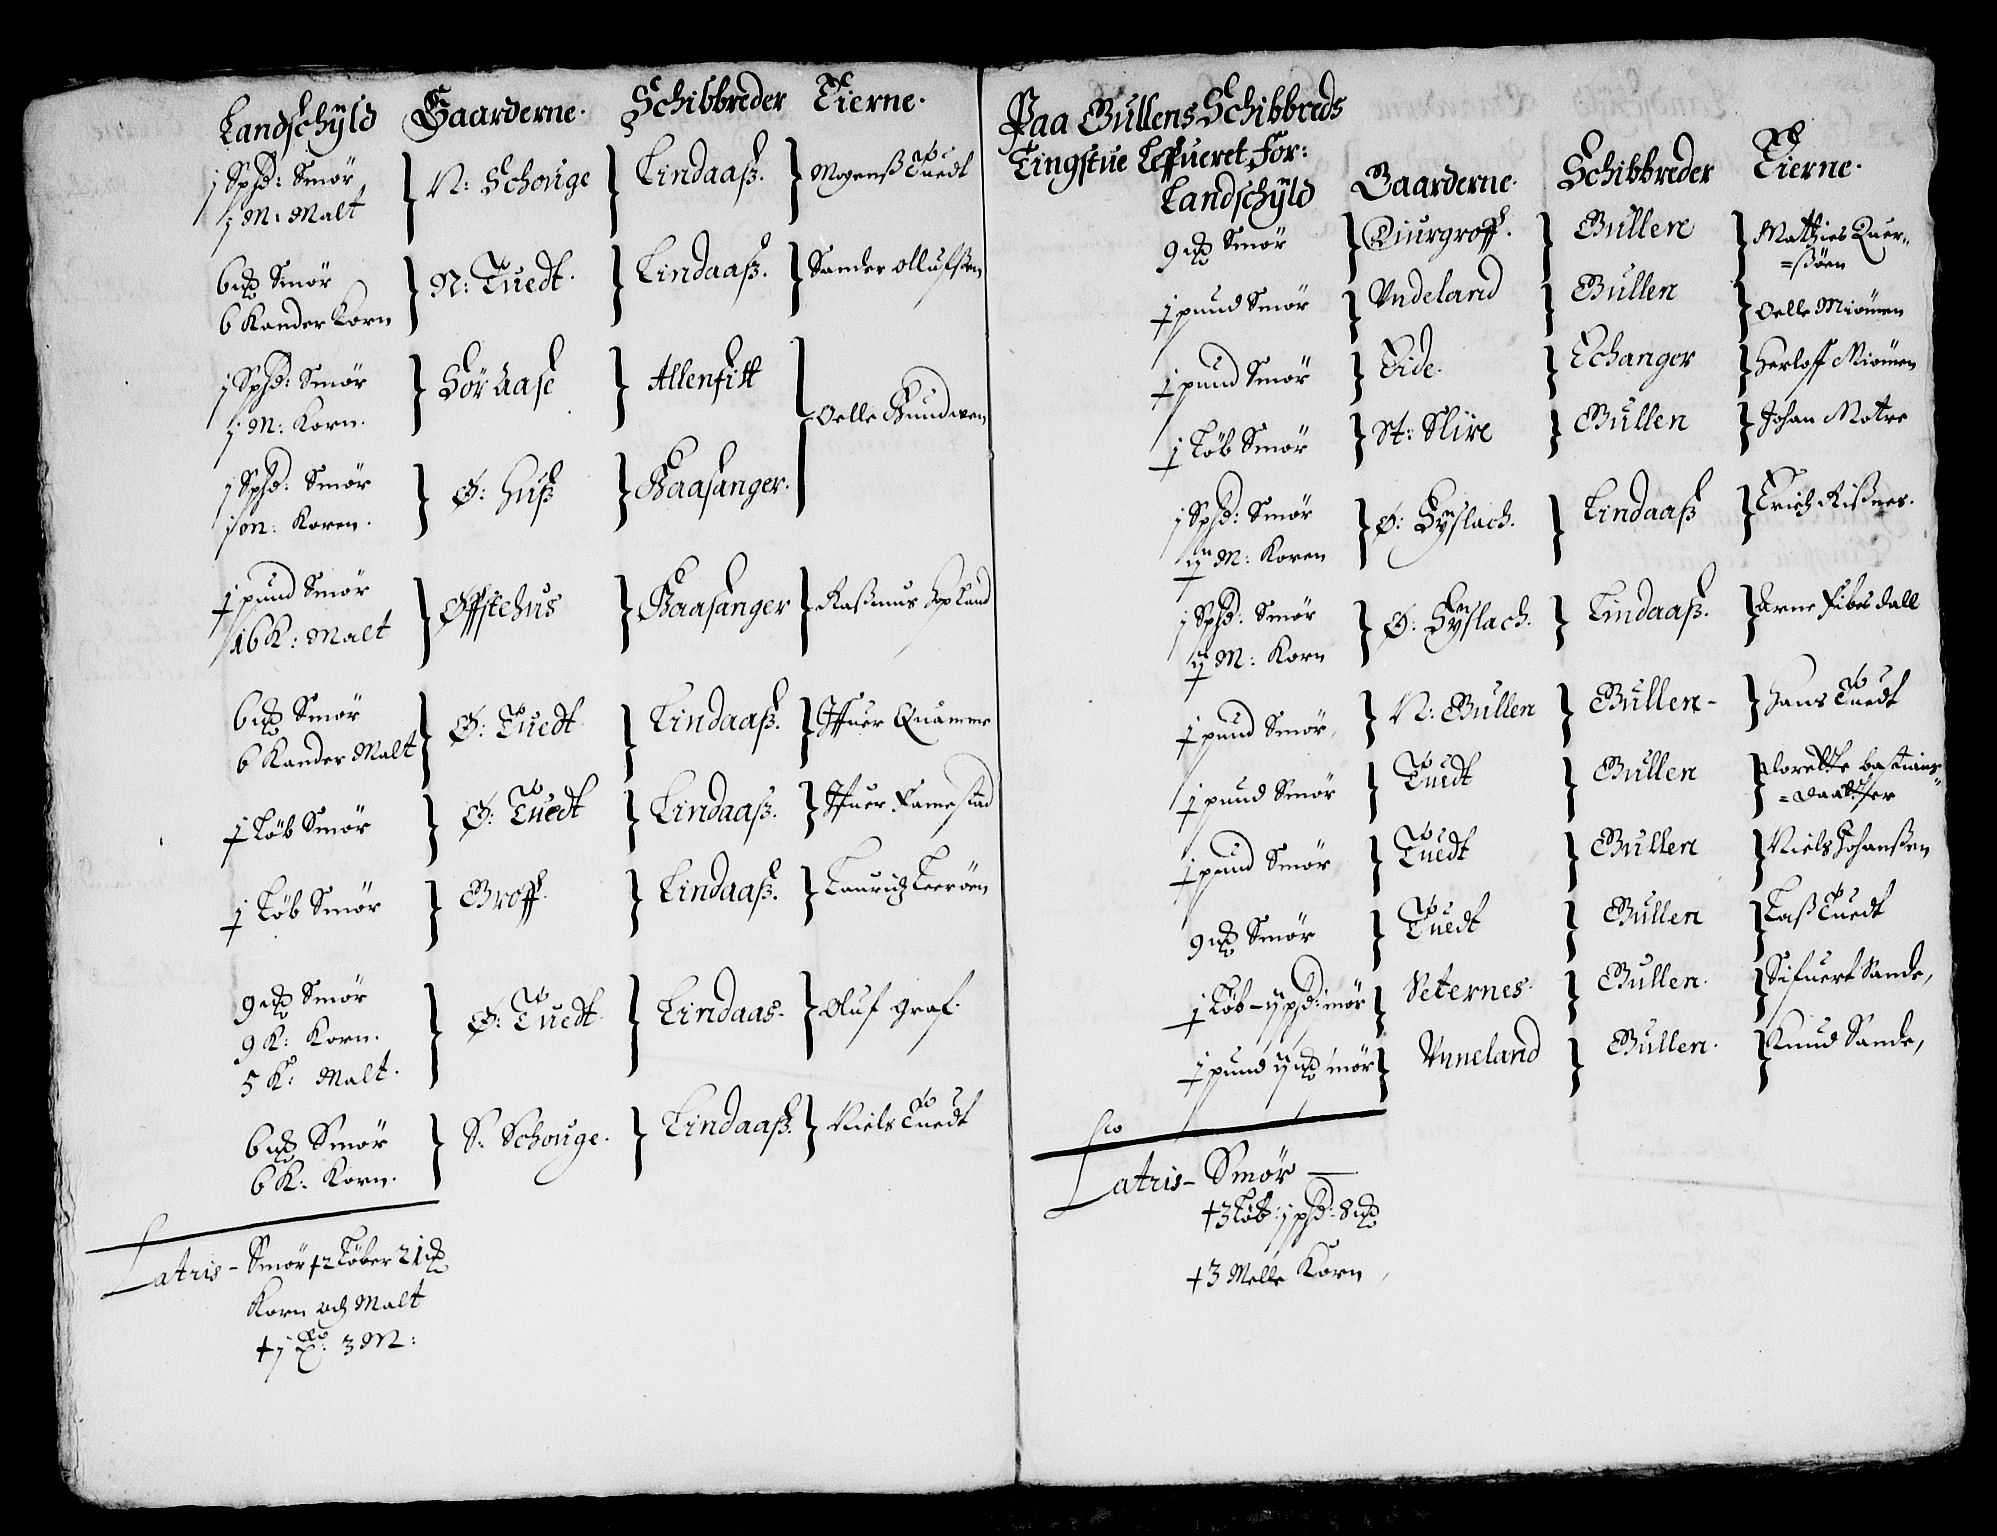 Landschÿld Gaarderne. Schibbreder Eierne.
j Spd: Smör
j M: Malt } N: Schouge } Lindaaß. } Mogenß Tuedt
6 Smör
6 Kander Korn } N: Tuedt. } Lindaaß. } Sander Ollufßen
j Spd: Smör
j M: Korn. } Sör Aase } Allenfitt } Oelle Gundwen
j Spd: Smör
j M: Koren. } Ø: Huß } Gaasanger.
j pund Smör
16 K: Malt } Øffstehus } Gaasanger } Raßmus Hopland
6 Smör
6 Kander Malt } Ø: Tuedt. } Lindaaß. } Iffuer Quamme
j Löb Smör } Ø: Tuedt } Lindaaß. } Iffuer Famestad
j Löb Smör } Groff. } Lindaaß. } Lauritz Leeröen
9 Smör
9 K: Korn.
5 K: Malt. } Ø: Tuedt. } Lindaas- } Oluf Graf.
6 Smör
6 K: Korn. } S: Schouge. } Lindaaß. } Niels Tuedt
Latris- Smör 2 Löber 21
Korn och Malt
j 3 M:
Paa Gullens Schibbreds
Tingstue Leffueret For:
Landschÿld Gaarderne. Schibbreder Eierne.
9 Smör } Diurgroff. } Gullen } Mathies Quer=
=ßöen
j pund Smör } Vndeland } Gullen } Oelle Miömen
j pund Smör } Eide. } Echanger } Herloff Miömen
j Löb Smör } St: Slire } Gullen } Johan Motre
j Spd: Smör
M: Koren } Ø: Hyslach. } Lindaaß } Erich Rißnes.
j Spd: Smör
M: Korn } Ø: Hyslach. } Lindaaß. } Arne Fibesdall
j pund Smör } N: Gullen } Gullen- } Hans Tuedt
j pund Smör } Tuedt } Gullen } Dorethe Bastians
=Daatter
j pund Smör } Tuedt } Gullen } Niels Johanßen
9 Smör } Tuedt } Gullen } Laß Tuedt
j Löb - ij pd: smör } Setternes. } Gullen. } Sifuert Sande,
j pund ij smör } Vnneland } Gullen. } Knud Sande,
Latris- Smör
3 Löb: j pd: 8
3 Melle Korn